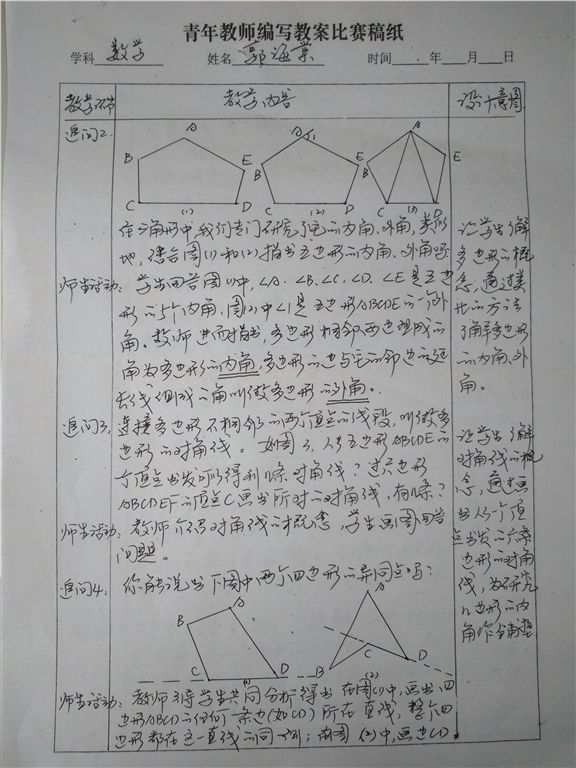 青年教师编写教案比赛稿纸
学科 数学 姓名 郭海棠 时间 年 月 日
教学环节 教学内容 设计意图
追问2:
A B C D E (1)
A 1 B C D E (2)
A B C D E (3)
在三角形中,我们专门研究了它的内角、外角,类似
地,结合图(1)和(2)指出五边形的内角、外角吗
师生活动: 学生回答图(1)中,∠A、∠B、∠C、∠D、∠E是五边
形的5个内角,图(2)中∠1是五边形ABCDE的一个外
角。教师进而指出,多边形相邻两边组成的
角为多边形的内角,多边形的边与它的邻边的延
长线组成的角叫做多边形的外角。
让学生了解
多边形的概
念,通过类
比的方法
了解多边形
的内角、外
角。
追问3: 连接多边形不相邻的两个顶点的线段,叫做多
边形的对角线。如图3,从五边形ABCDE的一
个顶点出发可以得到几条对角线?过六边形
ABCDEF的顶点C画出所对的对角线,有几条?
师生活动: 教师介绍对角线的概念,学生画图回答
问题。
让学生了解
对角线的概
念,通过画
出从一个顶
点出发的六条
边形的对角
线,为研究
n边形的内
角作铺垫
追问4: 你能说出下图中两个四边形的异同点吗?
A B C D (1)
A B C D (2)
师生活动: 教师引导学生共同分析得出在图(1)中,画出四
边形ABCD的任何一条边(如CD)所在直线,整个四
边形都在这一直线的同一侧;而图(2)中,画边CD